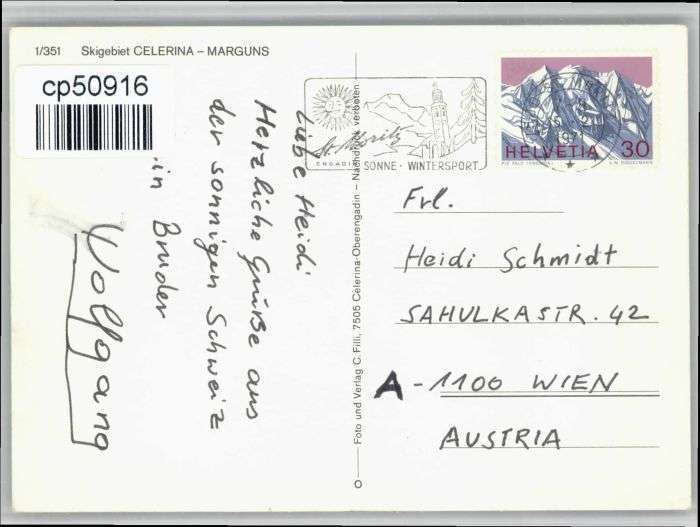 1/351 Skigebiet CELERINA – MARGUNS
cp50916
Liebe Heidi
Herzliche Grüße aus
der sonnigen Schweiz
.in Bruder
Wolfgang
Foto und Verlag C. Filli, 7505 Celerina-Oberengadin – Nachdruck verboten
St. Moritz
ENGADIN SONNE · WINTERSPORT
HELVETIA 30
Frl.
Heidi Schmidt
SAHULKASTR. 42
A-1100 WIEN
AUSTRIA